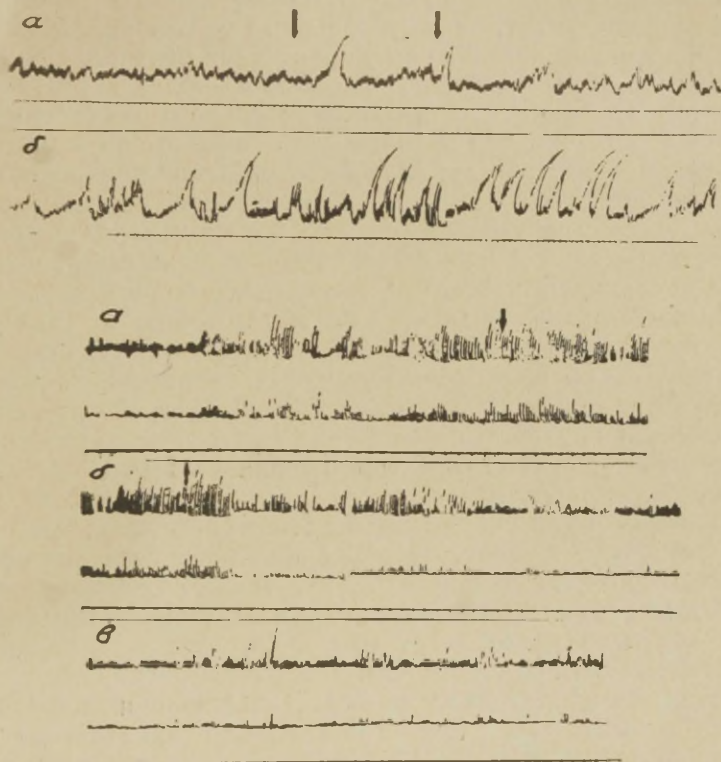 а
б
а
б
в